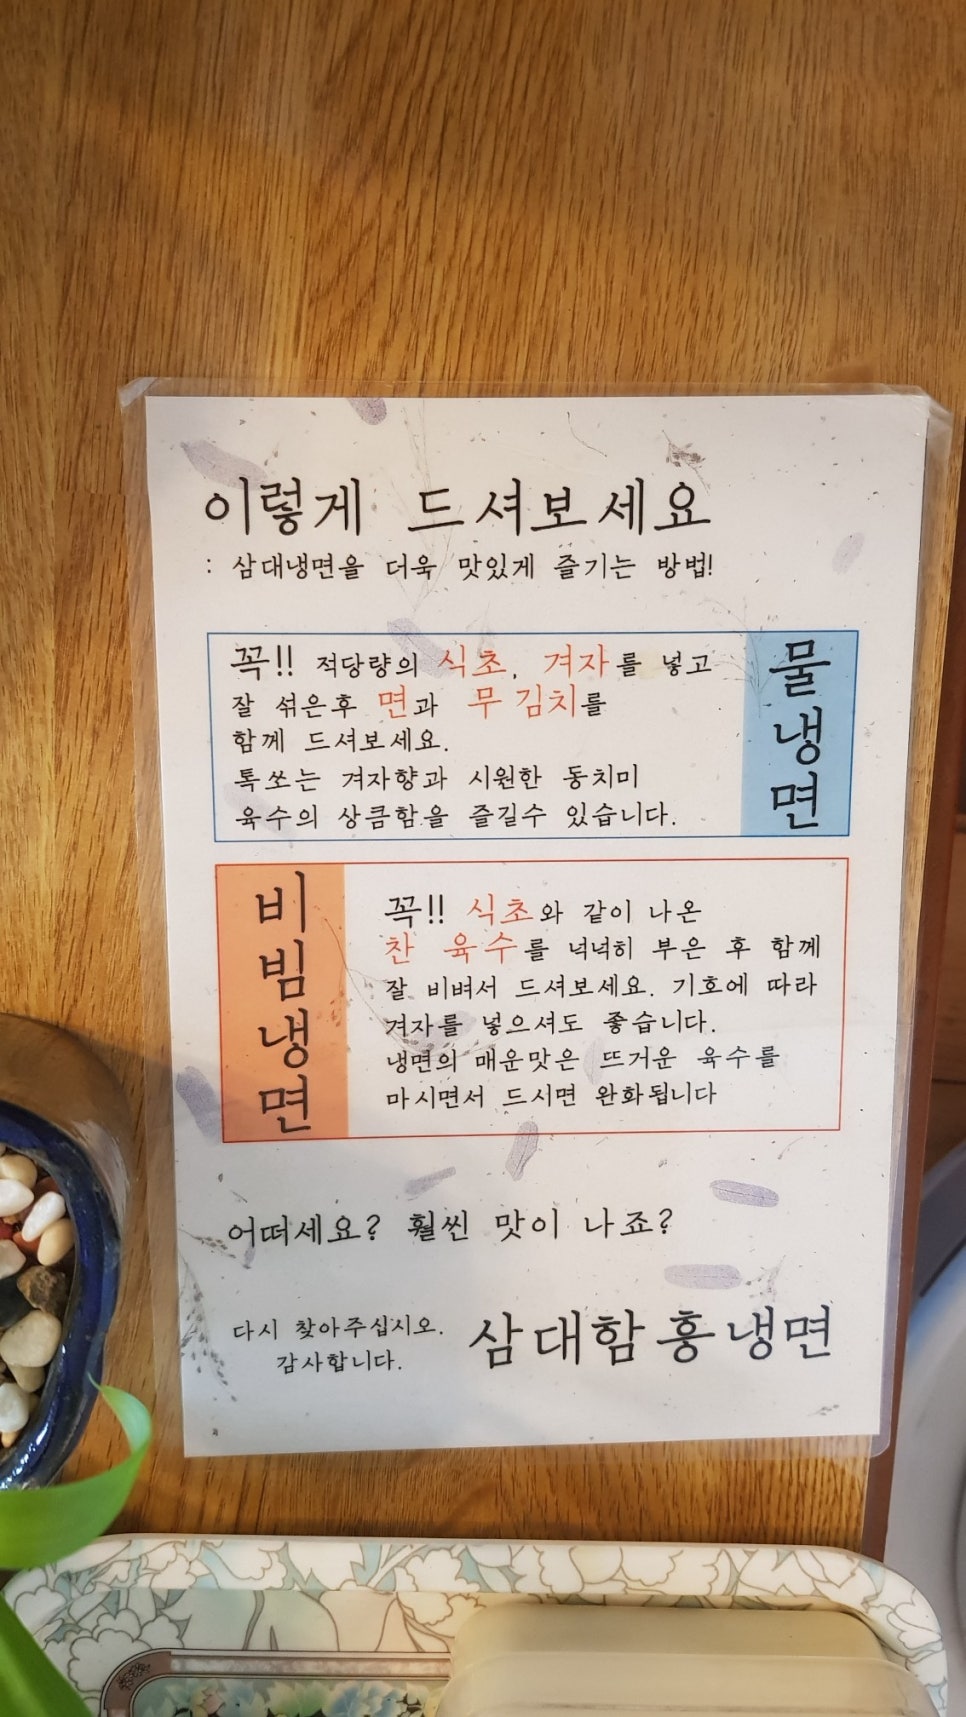 이렇게 드셔보세요
: 삼대냉면을 더욱 맛있게 즐기는 방법!
물냉면
꼭!! 적당량의 식초, 겨자를 넣고
잘 섞은후 면과 무 김치를
함께 드셔보세요.
톡쏘는 겨자향과 시원한 동치미
육수의 상큼함을 즐길수 있습니다.
비빔냉면
꼭!! 식초와 같이 나온
찬 육수를 넉넉히 부은 후 함께
잘 비벼서 드셔보세요. 기호에 따라
겨자를 넣으셔도 좋습니다.
냉면의 매운맛은 뜨거운 육수를
마시면서 드시면 완화됩니다
어떠세요? 훨씬 맛이 나죠?
다시 찾아주십시오.
감사합니다.
삼대함흥냉면